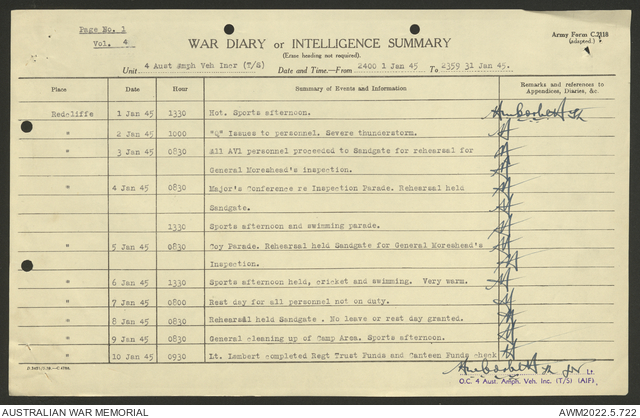 Page No. 1
Vol. 4
Army Form C.2118
(adapted.)
WAR DIARY or INTELLIGENCE SUMMARY
(Erase heading not required).
Unit 4 Aust Amph Veh Incr (T/S) Date and Time.—From 2400 1 Jan 45 To 2359 31 Jan 45.
Place Date Hour Summary of Events and Information Remarks and references to
Appendices, Diaries, &c.
Redcliffe 1 Jan 45 1330 Hot. Sports afternoon.
" 2 Jan 45 1000 "Q" Issues to personnel. Severe thunderstorm.
" 3 Jan 45 0830 All AVI personnel proceeded to Sandgate for rehearsal for
General Moreshead's inspection.
" 4 Jan 45 0830 Major's Conference re Inspection Parade. Rehearsal held
Sandgate.
1330 Sports afternoon and swimming parade.
" 5 Jan 45 0830 Coy Parade. Rehearsal held Sandgate for General Moreshead's
Inspection.
" 6 Jan 45 1330 Sports afternoon held, cricket and swimming. Very warm.
" 7 Jan 45 0800 Rest day for all personnel not on duty.
" 8 Jan 45 0830 Rehearsal held Sandgate . No leave or rest day granted.
" 9 Jan 45 0830 General cleaning up of Camp Area. Sports afternoon.
" 10 Jan 45 0930 Lt. Lambert completed Regt Trust Funds and Canteen Funds check
Lt.
O.C. 4 Aust. Amph. Veh. Inc. (T/S) (AIF).
AUSTRALIAN WAR MEMORIAL
AWM2022.5.722